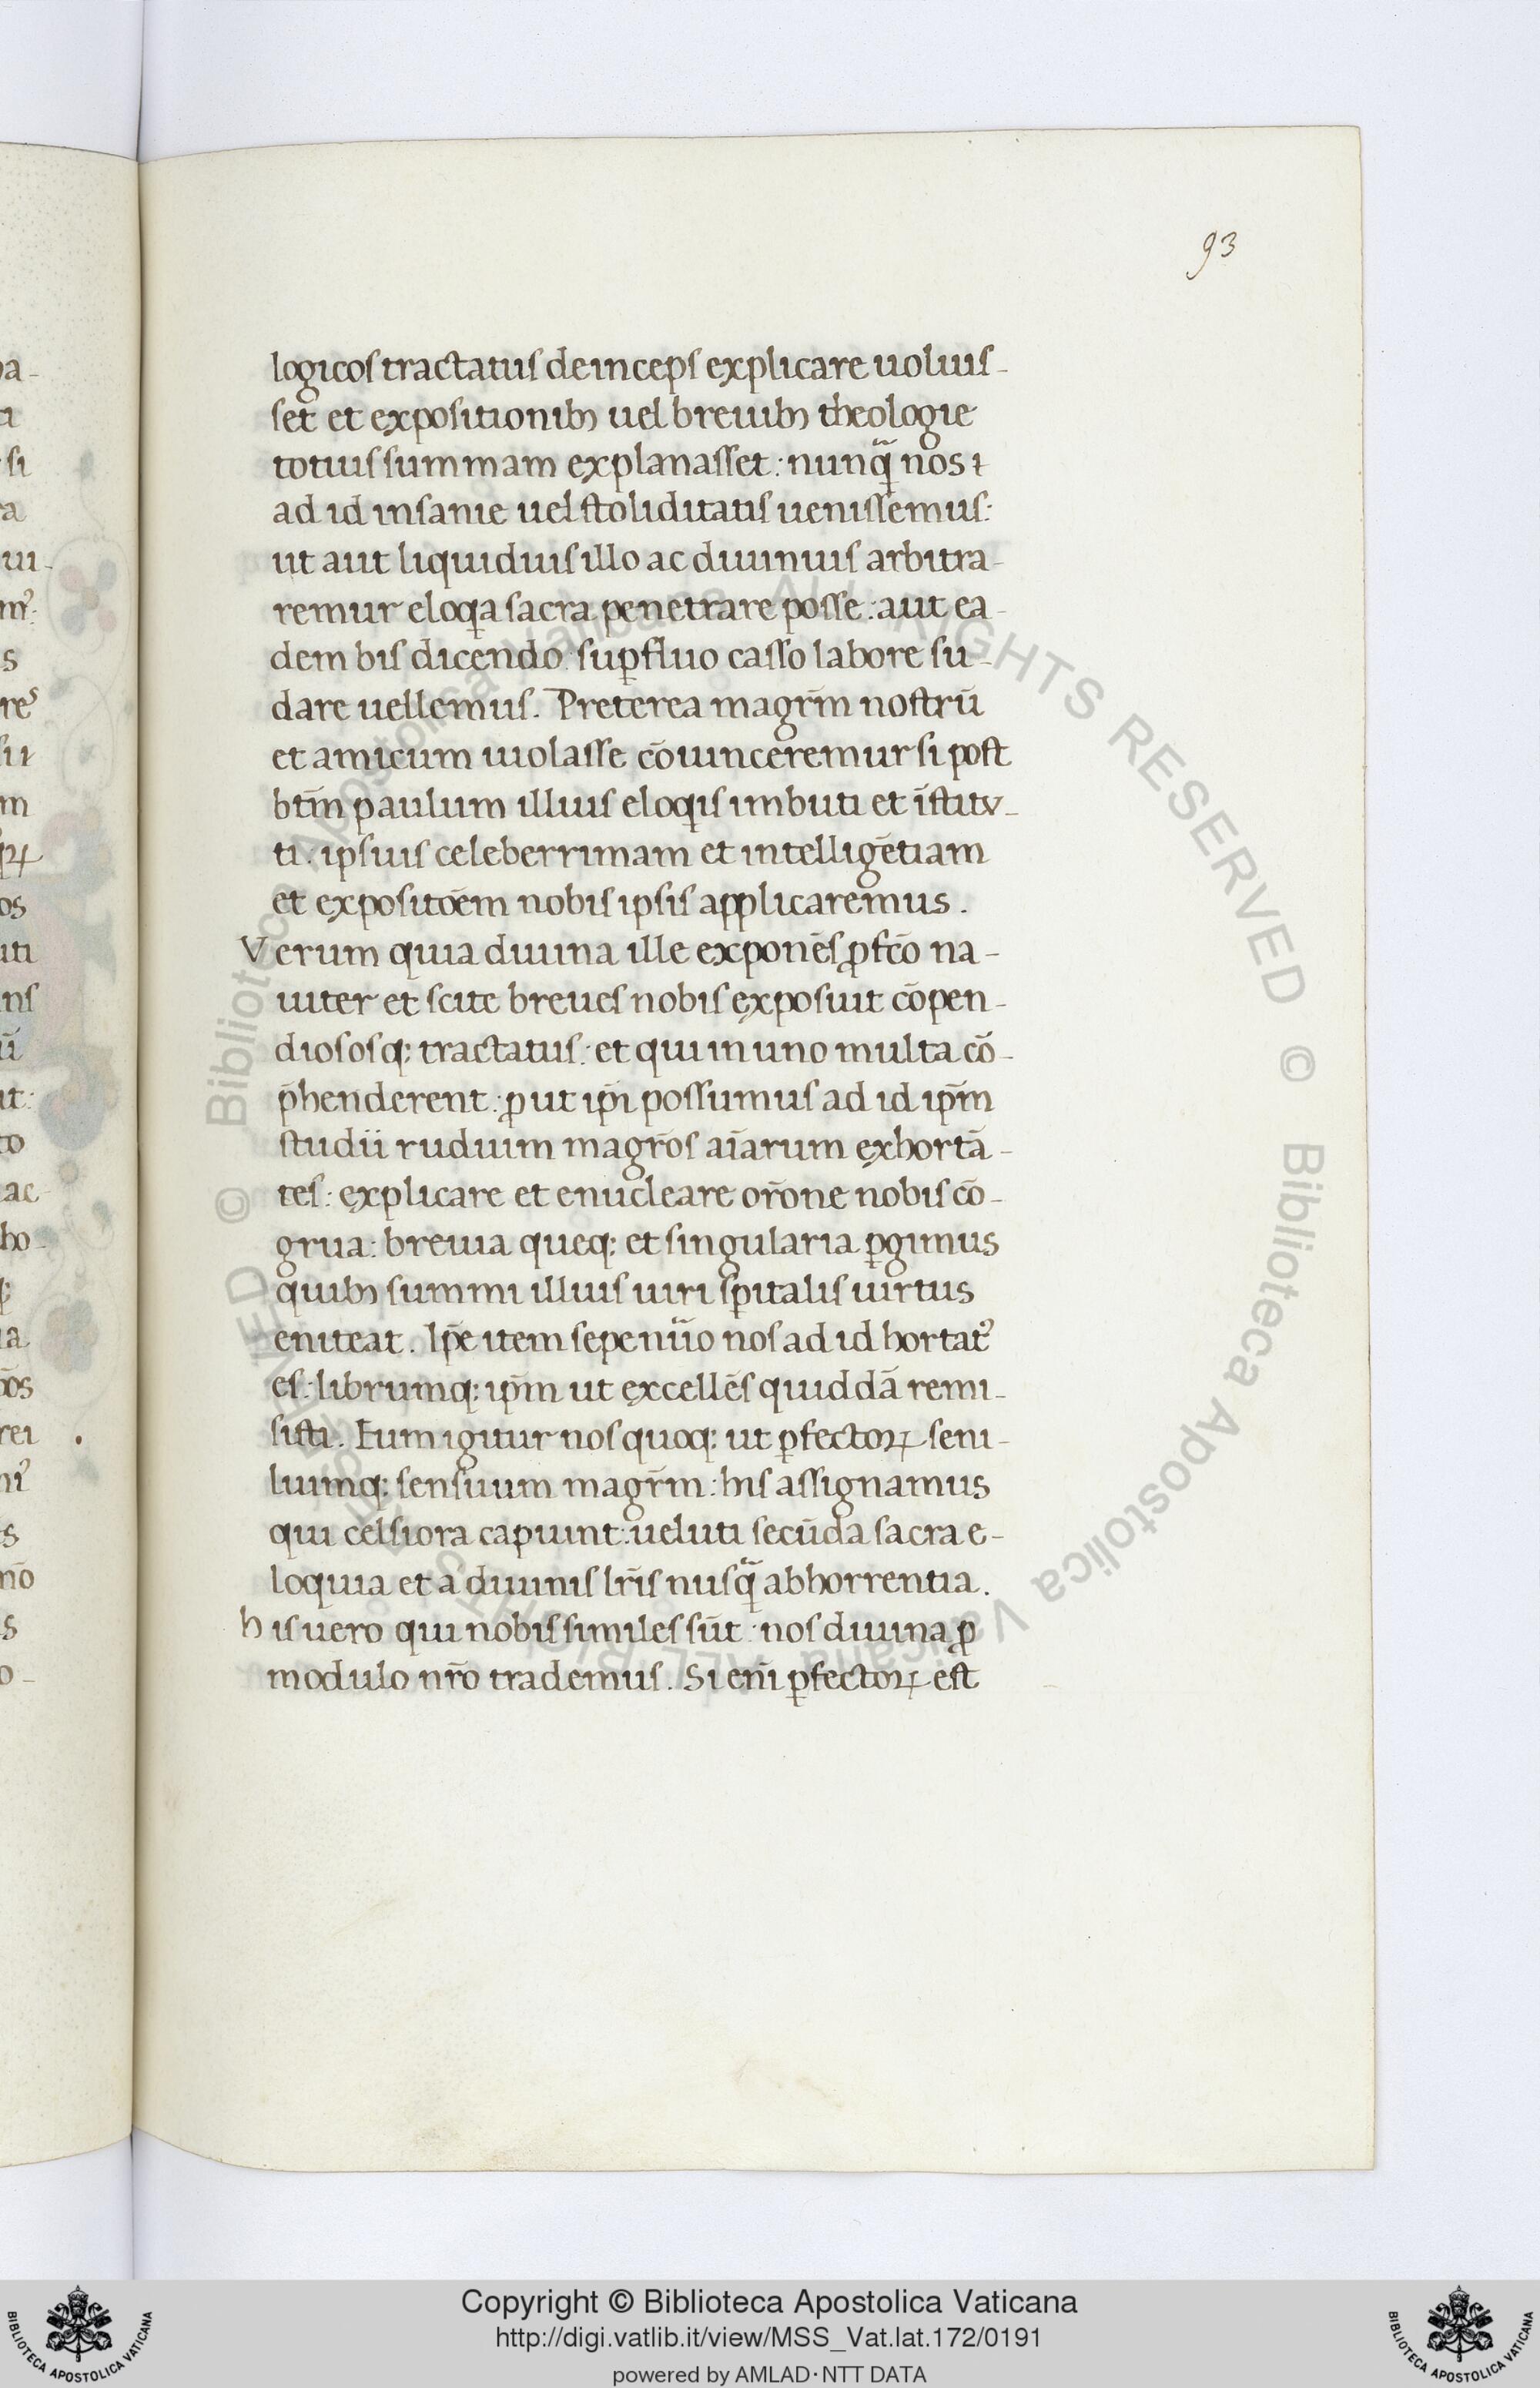 93
logicos tractatus deinceps explicare uoluis-
set et expositionibꝫ uel breuibꝫ theologie
totius summam explanasset: nunq̃ nos ⁊
ad id insanie uel stoliditatis uenissemus:
ut aut liquidius illo ac diuinius arbitra-
remur eloqa sacra penetrare posse: aut ea-
dem bis dicendo: suꝑfluo casso labore su-
dare uellemus. Preterea magr̄m nostrū
et amicum uiolasse cōuinceremur si post
btm̄ paulum illius eloqis imbuti et īstitv-
ti: ipsius celeberrimam et intelligētiam
et expositōem nobis ipsis applicaremus.
Verum quia diuina ille exponēs ꝓfco̅ na-
uiter et scite breues nobis exposuit cōpen-
diososq; tractatus: et qui in uno multa cō-
p̄henderent: ꝓut ip̄i possumus ad id ip̄m
studii rudium magr̄os aīarum exhortā-
tes: explicare et enucleare or̄one nobis cō-
grua: breuia queq; et singularia ꝑgimus
quibꝫ summi illius uiri sp̄italis uirtus
eniteat. Ip̄e item sepenūo nos ad id hortatꝰ
es: librumq; ip̄m ut excellēs quiddā remi-
sisti. Eum igitur nos quoq; ut ꝑfectoꝝ seni-
liumq; sensuum magr̄m: his assignamus
qui celsiora capiunt: ueluti secūda sacra e-
loquia et a diuinis lr̄is nusq̃ abhorrentia.
his uero qui nobis similes sūt: nos diuina ꝓ
modulo nr̄o trademus. Si eni̅ ꝑfectoꝝ est
Copyright © Biblioteca Apostolica Vaticana
http://digi.vatlib.it/view/MSS_Vat.lat.172/0191
powered by AMLAD·NTT DATA